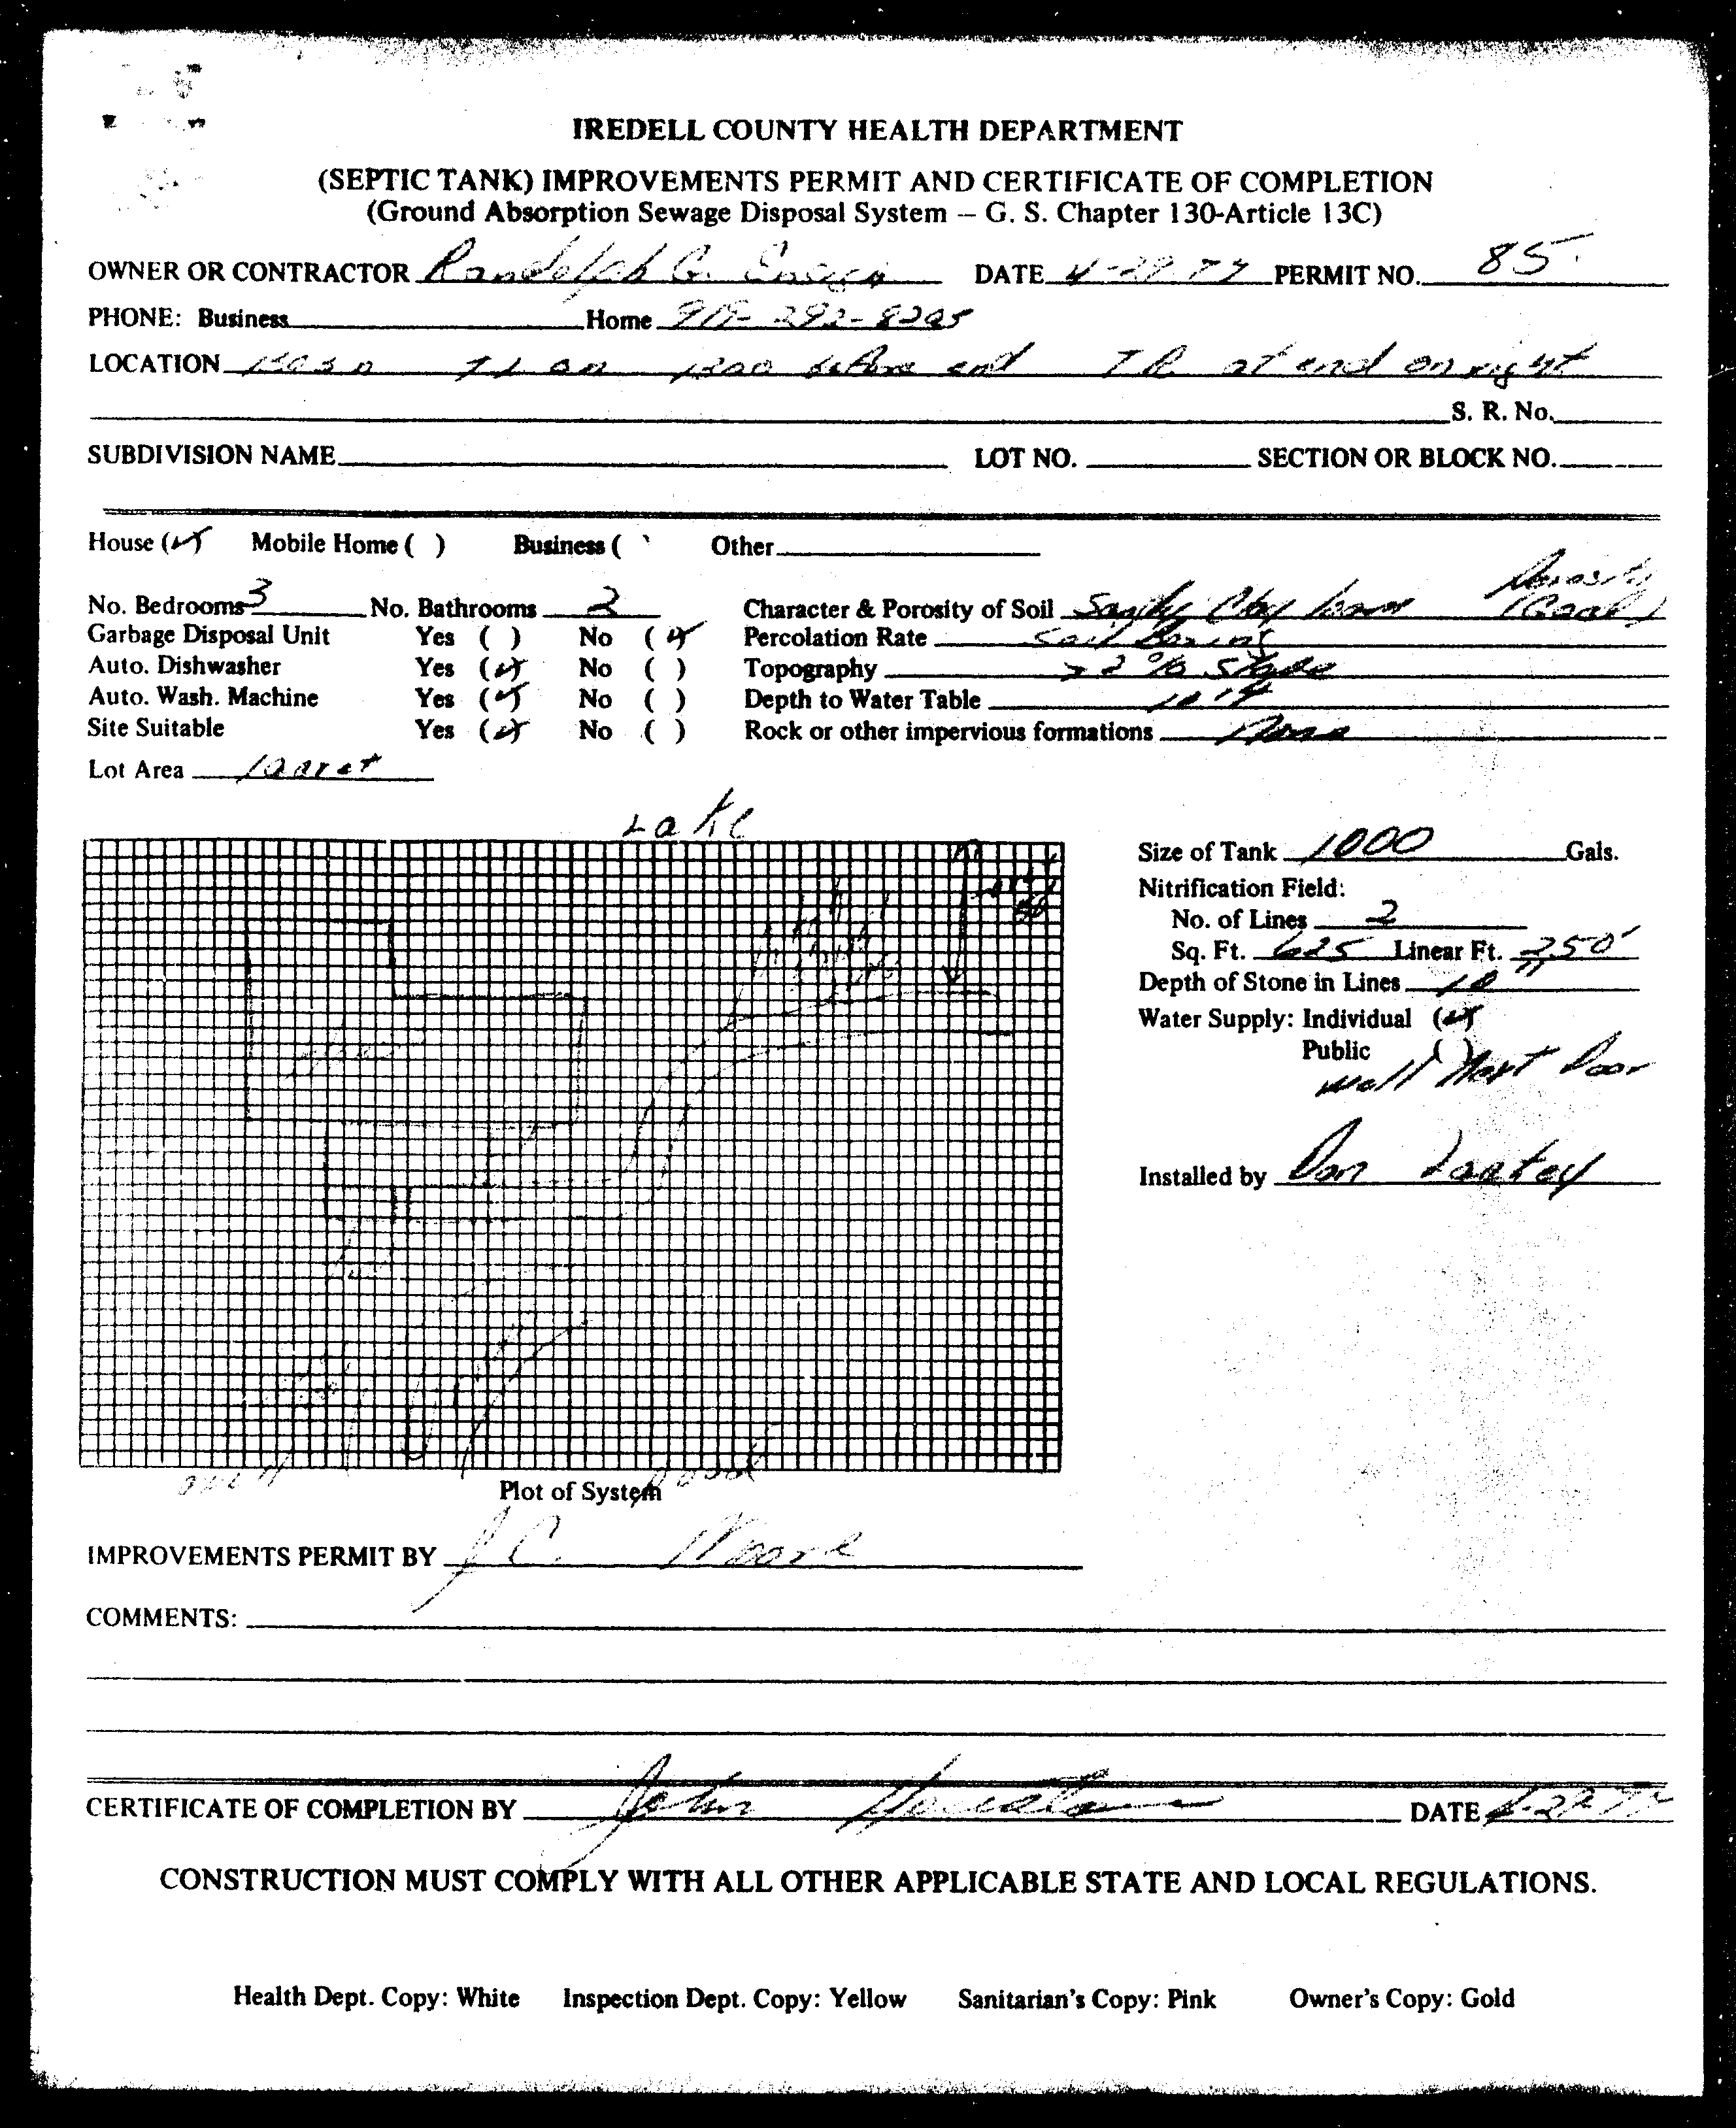 IREDELL COUNTY HEALTH DEPARTMENT
(SEPTIC TANK) IMPROVEMENTS PERMIT AND CERTIFICATE OF COMPLETION
(Ground Absorption Sewage Disposal System – G. S. Chapter 130-Article 13C)
OWNER OR CONTRACTOR Randolph G. DATE PERMIT NO. 85
PHONE: Business Home 919-292-8205
LOCATION TL on 1300 before end TR at end on right
S. R. No.
SUBDIVISION NAME LOT NO. SECTION OR BLOCK NO.
House (✓) Mobile Home ( ) Business ( ) Other
No. Bedrooms 3 No. Bathrooms 2 Character & Porosity of Soil Sandy Clay loam Porosity (Good)
Garbage Disposal Unit Yes ( ) No (✓) Percolation Rate Soil Boring
Auto. Dishwasher Yes (✓) No ( ) Topography >2% Slope
Auto. Wash. Machine Yes (✓) No ( ) Depth to Water Table 10'+
Site Suitable Yes (✓) No ( ) Rock or other impervious formations None
Lot Area 1 acre+
Lake
Size of Tank 1000 Gals.
Nitrification Field:
No. of Lines 2
Sq. Ft. 625 Linear Ft. 250'
Depth of Stone in Lines 10"
Water Supply: Individual (✓)
Public ( )
well Next Door
Installed by Don
Plot of System
Road
IMPROVEMENTS PERMIT BY J.C. Moore
COMMENTS:
CERTIFICATE OF COMPLETION BY John DATE
CONSTRUCTION MUST COMPLY WITH ALL OTHER APPLICABLE STATE AND LOCAL REGULATIONS.
Health Dept. Copy: White Inspection Dept. Copy: Yellow Sanitarian's Copy: Pink Owner's Copy: Gold